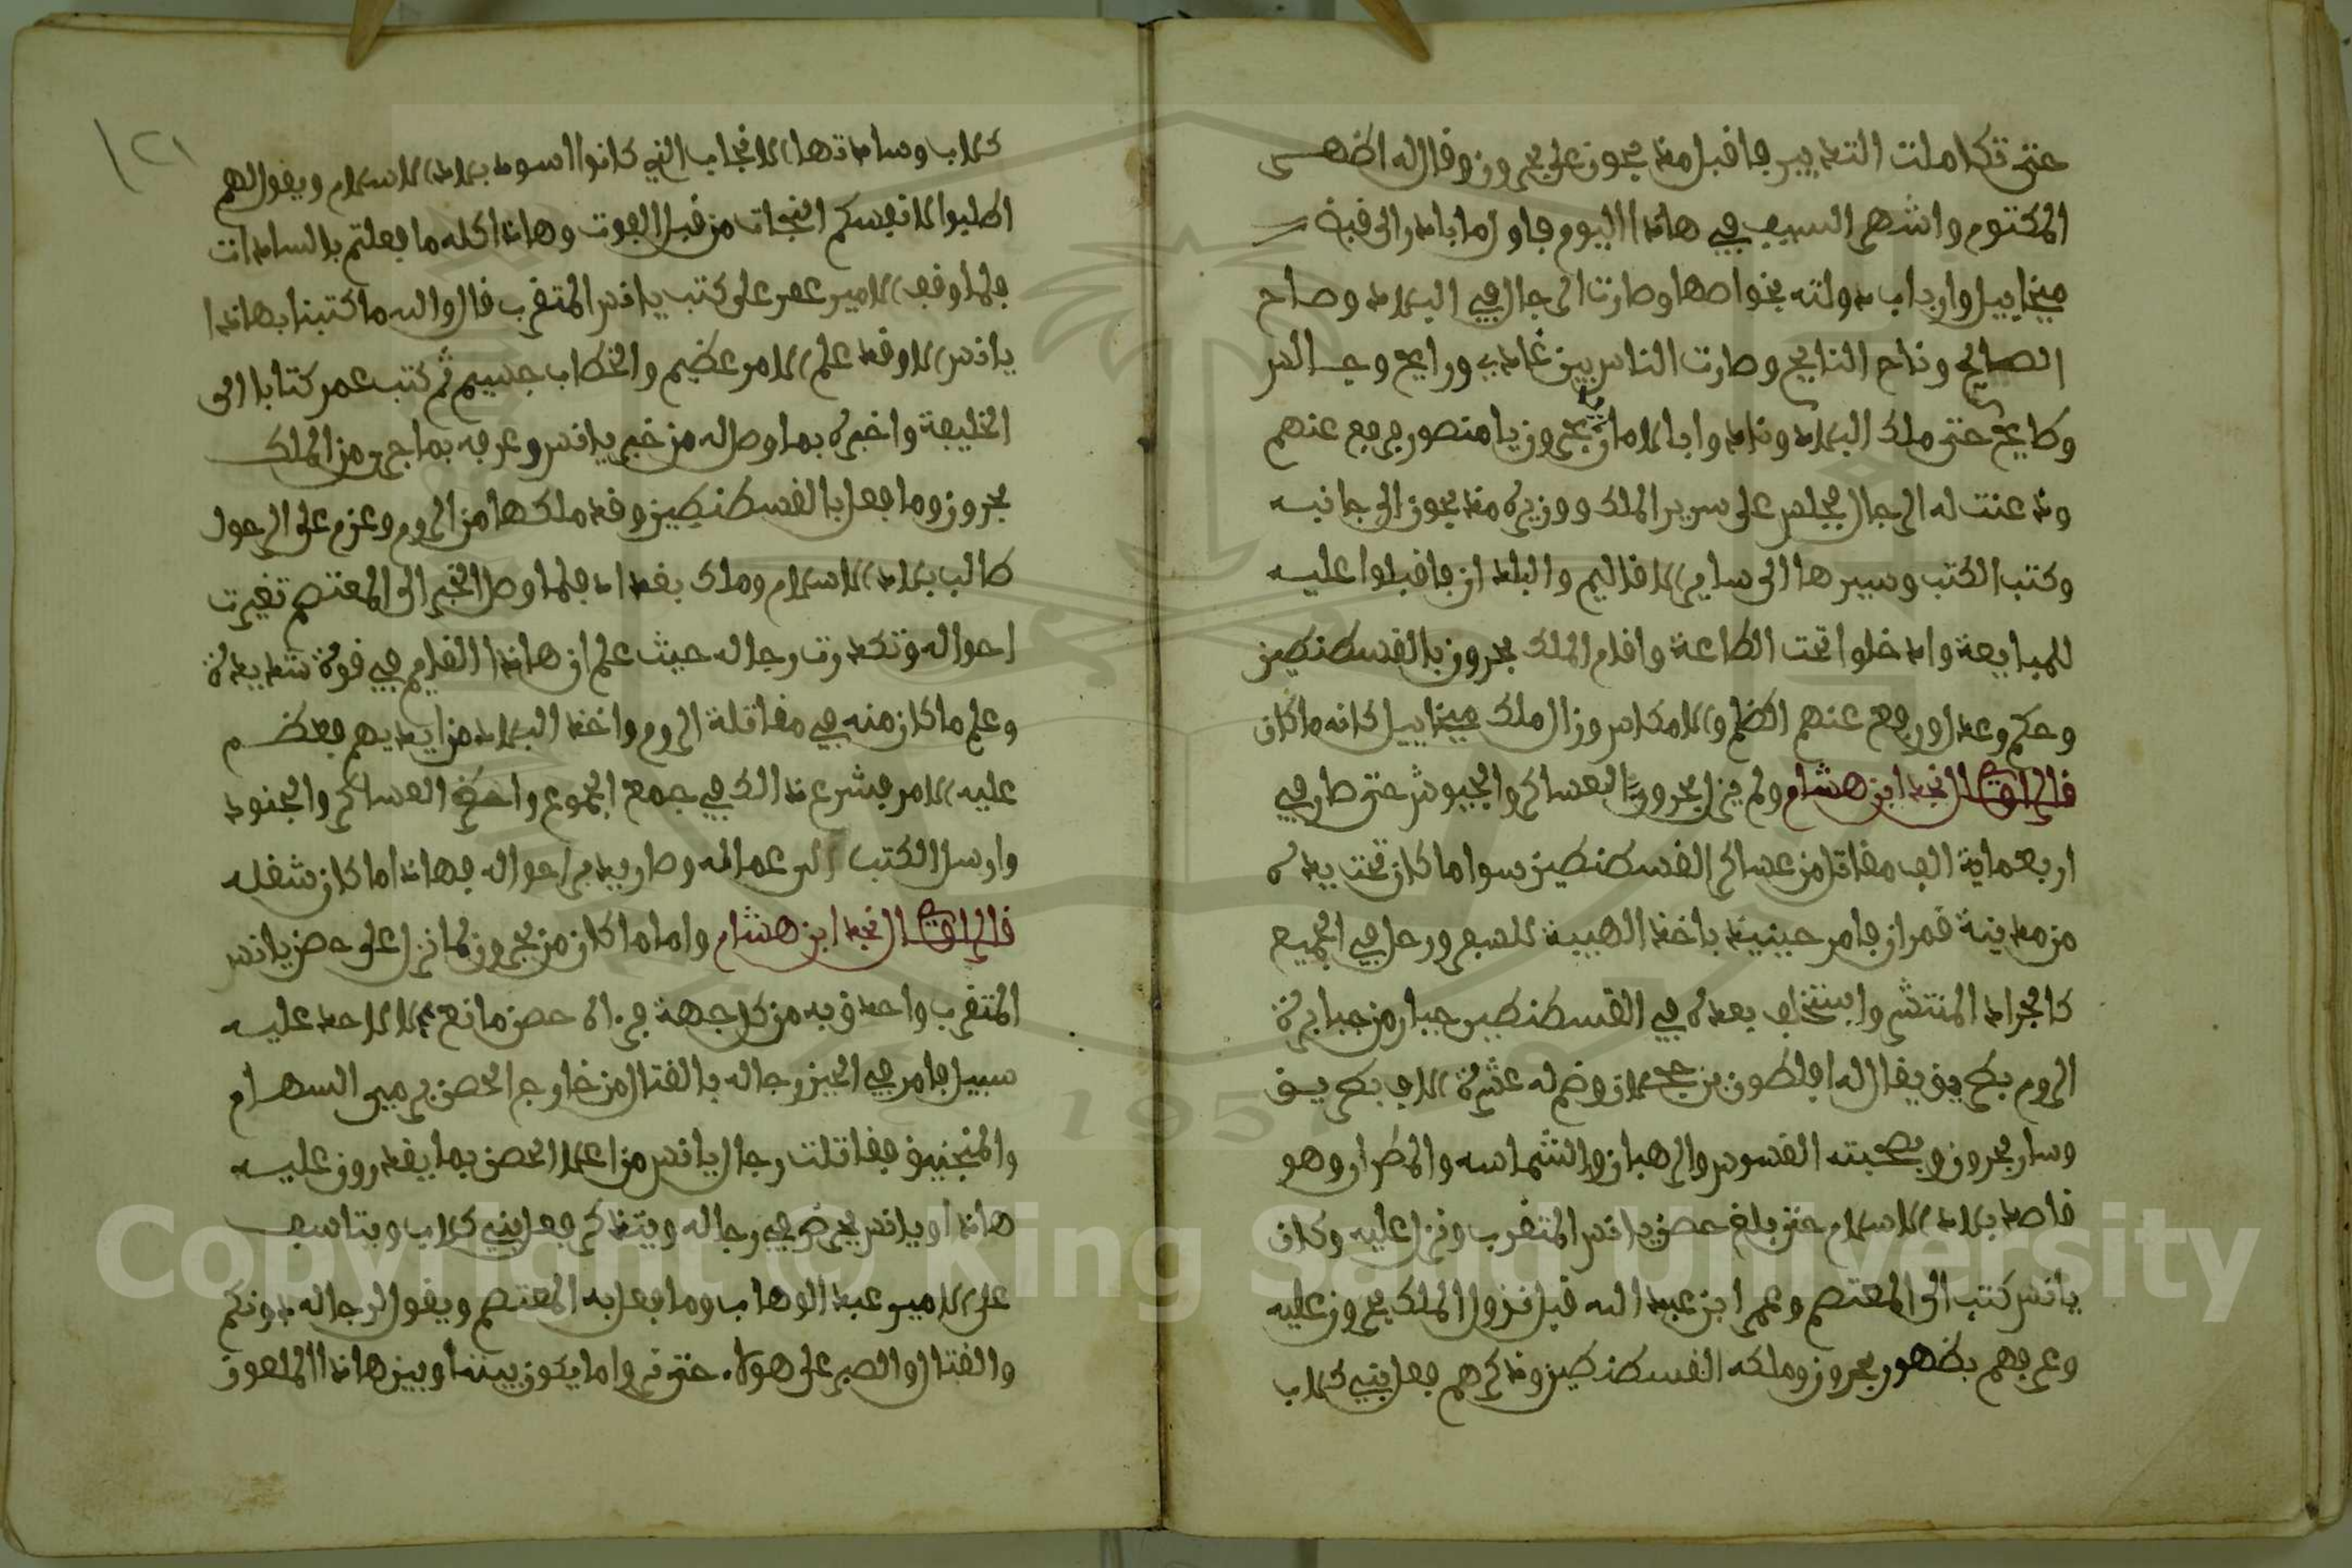 حتى تكاملت التدبير فاقبل منجون على بحرون وقال له اظهر
المكتوم واشهر السيف في هاذا اليوم فاول ما بادر الى قبة
ميخاييل وارباب دولته بخواصها وصارت الرجال في البلاد وصاح
الصايح وناح النايح وصارت الناس بين غادي ورايح وجالس
وطايح حتى ملك البلاد ونادوا بالامان بحرون يا منصور فرفع عنهم
وذعنت له الرجال فجلس على سرير الملك ووزيره منجون الى جانبه
وكتب الكتب وسيرها الى ساير الاقاليم والبلدان فاقبلوا عليه
للمبايعة وادخلوا تحت الطاعة واقام الملك بحرون بالقسطنطين
وحكم وعدل ورفع عنهم الظلم والامكاس وزال ملك ميخاييل كانه ما كان
قال الراوي نجد ابن هشام ولم يزل بحرون العساكر والجيوش حتى صار في
اربعماية الف مقاتل من عساكر القسطنطين سوا ما كان تحت يده
من مدينة قمران فامر حينيذ باخذ الهيبة للسفر ورحل في الجميع
كالجراد المنتشر واستخلف بعده في القسطنطين جبار من جبابرة
الروم بطريق يقال له افلطون بن وضم له عشرة الاف بطريق
وسار بحرون وبصحبته القسوس والرهبان والشماسه والمطران وهو
قاصد بلاد الاسلام حتى بلغ حصن يانس المتقرب ونزل عليه وكان
يانس كتب الى المعتصم وعمر ابن عبيد الله قبل نزول الملك بحرون عليه
وعرفهم بظهور بحرون وملكه القسطنطين وذكرهم فعل بني كلاب
١٢١
كلاب وساداتها الانجاب الذي كانوا اسود بلاد الاسلام ويقول لهم
اطلبوا لانفسكم النجات من قبل الفوت وهاذا كله ما فعلتم بالسادات
فلما وقف الامير عمر على كتب يانس المتقرب قال والله ما كتبنا بهاذا
يانس الا وقد علم الامر عظيم والخطاب جسيم ثم كتب عمر كتابا الى
الخليفة واخبره بما وصل له من خبر يانس وعرفه بما جرى من الملك
بحرون وما فعل بالقسطنطين وقد ملكها من الروم وعزم على الرحول
طالب بلاد الاسلام وملك بغداد فلما وصل الخبر الى المعتصم تغيرت
احواله وتكدرت رجاله حيث علم ان هاذا القرم في قوة شديدة
وعلم ما كان منه في مقاتلة الروم واخذ البلاد من ايديهم فعظم
عليه الامر فشرع ذالك في جمع الجموع واحضر العساكر والجنود
وارسل الكتب الى عماله وصار يدبر احواله فهاذا ما كان شغله
قال الراوي نجد ابن هشام واما ما كان من بحرون لما نزل على حصن يانس
المتقرب واحدق به من كل جهة فراه حصن مانع ما لاحد عليه
سبيل فامر في الحين رجاله بالقتال من خارج الحصن برمي السهام
والمنجنيق فقاتلت رجال يانس من اعلا الحصن بما يقدرون عليه
هاذا ويانس يحرض في رجاله ويتذكر فعل بني كلاب ويتاسف
على الامير عبد الوهاب وما فعل به المعتصم ويقول لرجاله دونكم
والقتال والصبر على هولاء حتى نروا ما يكون بيننا وبين هاذا الملعون
Copyright © King Saud University
1957